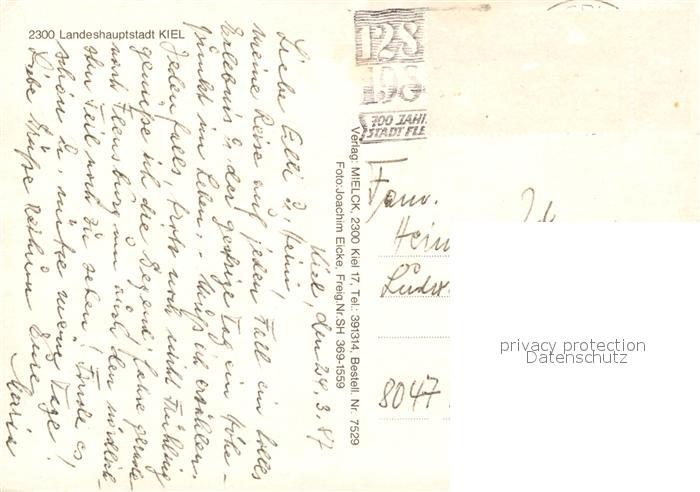 2300 Landeshauptstadt KIEL
Kiel, den 24.3.84
Liebe Elli u. Heini,
meine Reise auf jeden Fall ein tolles
Erlebnis u. der gestrige Tag ein Höhe-
punkt im Leben. - Muß ich erzählen.
Jedenfalls, trotz noch nicht Frühling
genieße ich die Gegend, fahre gerade
nach Flensburg um auch den nördlich-
sten Teil noch zu sehen! Finde es
schön u. nütze meine Tage!
Liebe Grüße Eure
Maria
Verlag: MIELCK, 2300 Kiel 17, Tel.: 391314, Bestell. Nr. 7529
Foto: Joachim Eicke, Freig.Nr.SH 369-1559
1284
198
700 JAH
STADT FLE
Fam.
Hein
Ludw
8047
privacy protection
Datenschutz